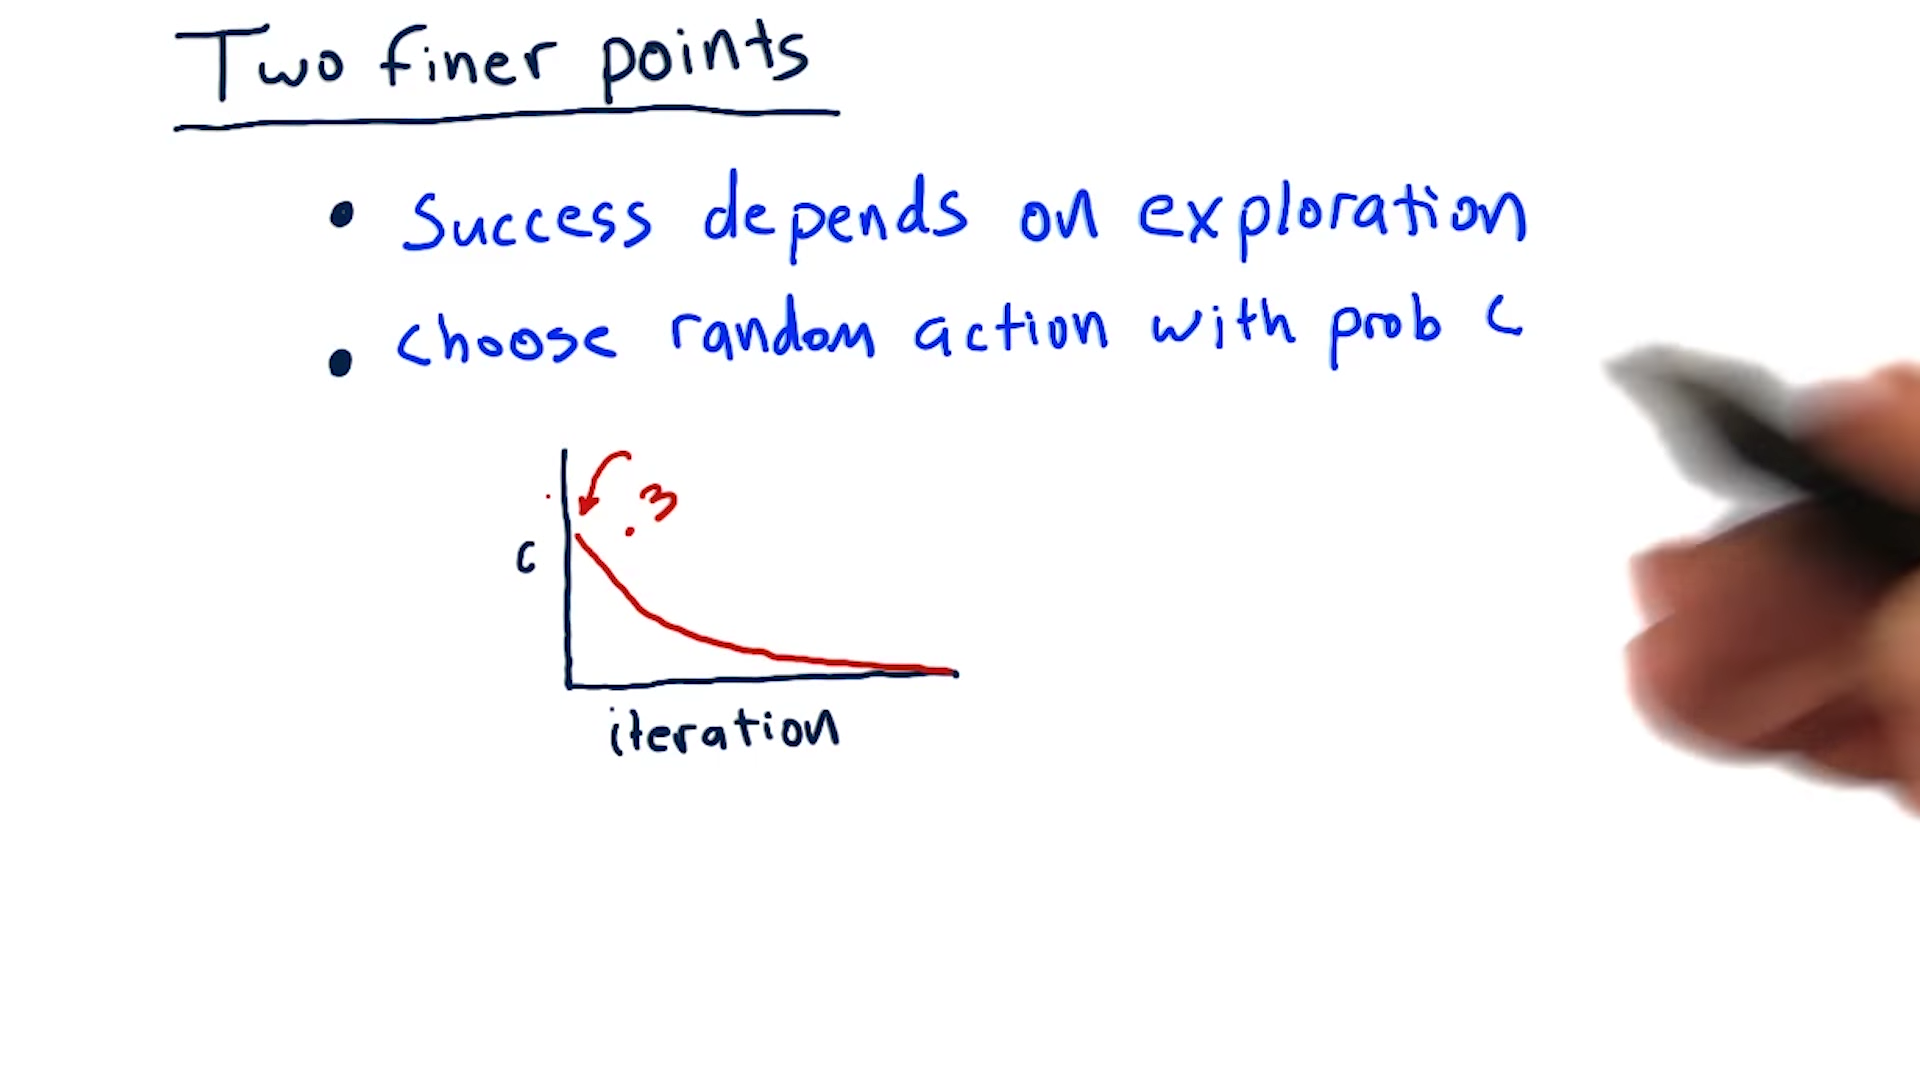 Two finer points
• Success depends on exploration
• choose random action with prob c
.3
c
iteration